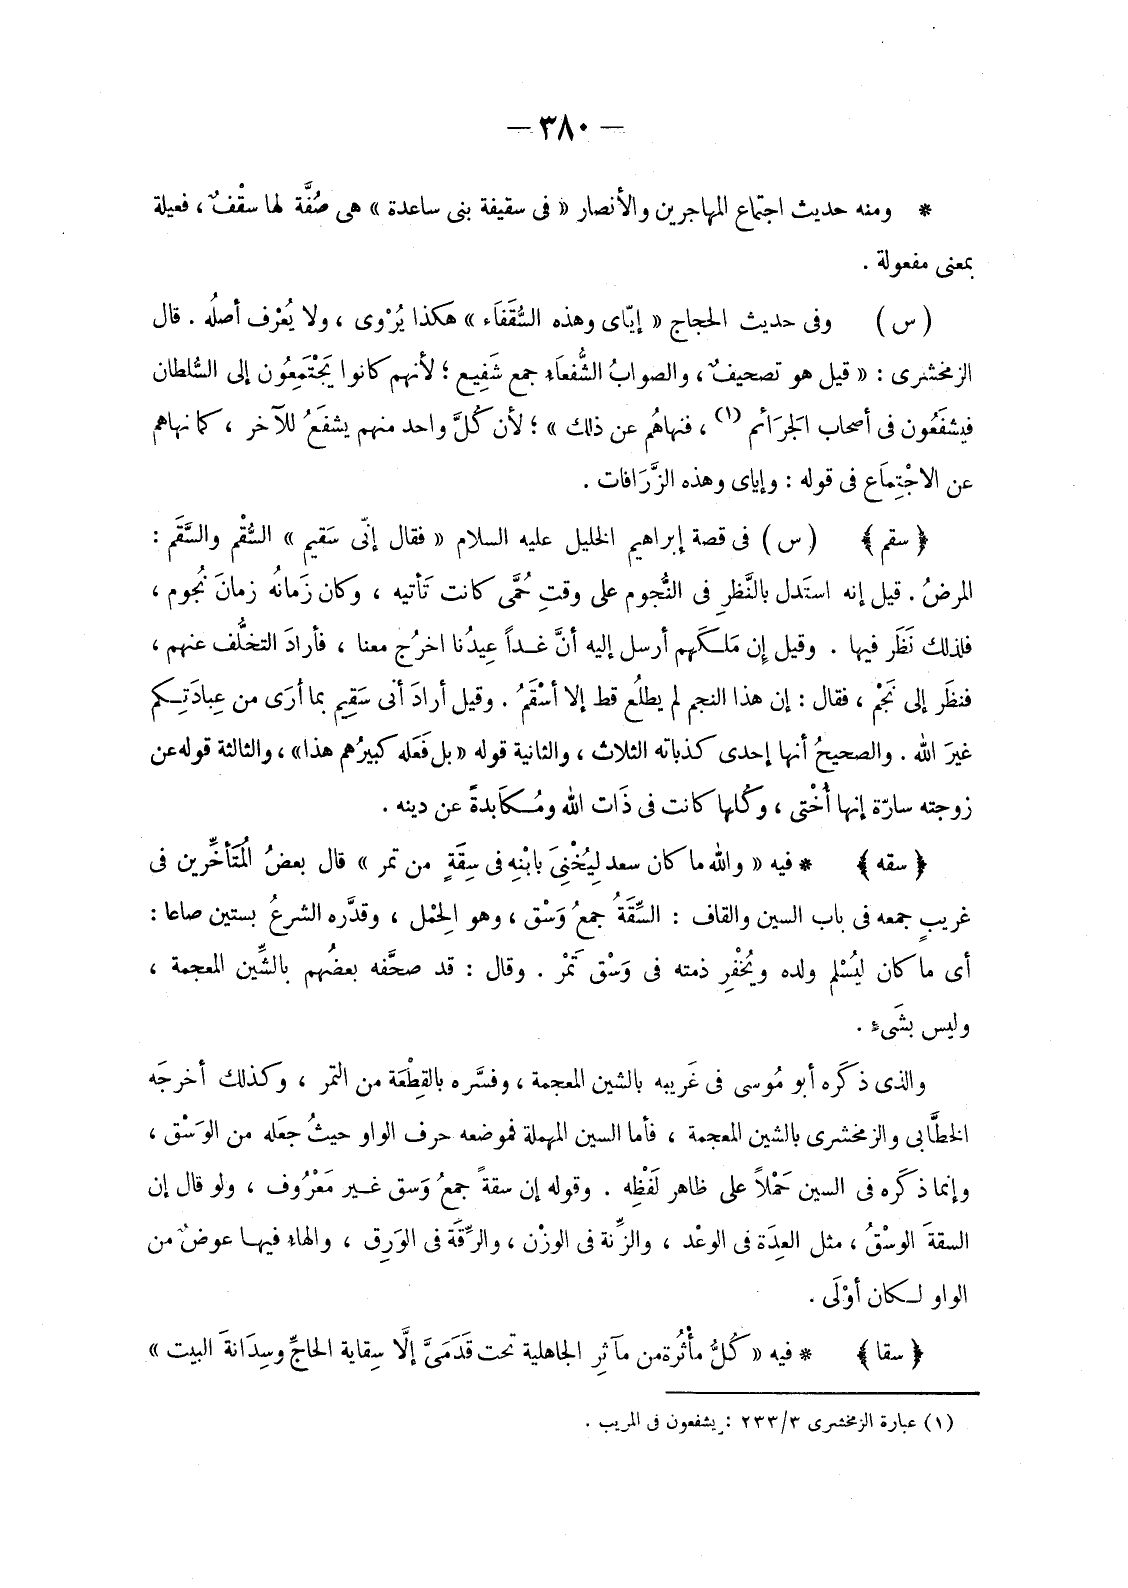 — ٣٨٠ —
* ومنه حديث اجتماع المهاجرين والأنصار « فى سقيفة بنى ساعدة » هى صُفَّة لها سقْفٌ ، فعيلة
بمعنى مفعولة .
( س ) وفى حديث الحجاج « إيّاى وهذه السُّقَفَاء » هكذا يُرْوى ، ولا يُعْرف أصلُه . قال
الزمخشرى : « قيل هو تصحيفٌ ، والصوابُ الشُّفعاَء جمع شَفِيع ؛ لأنهم كانوا يَجْتَمِعُون إلى السُّلطان
فيشفَعُون فى أصحاب الجَرَائم (١) ، فنهاهُم عن ذلك » ؛ لأن كُلَّ واحد منهم يشفَعُ للآخر ، كما نهاهم
عن الاجْتِمَاع فى قوله : وإياى وهذه الزَّرَافات .
﴿ سقم ﴾ ( س ) فى قصة إبراهيم الخليل عليه السلام « فقال إنّى سَقيم » السُّقْم والسَّقَم :
المرضُ . قيل إنه استَدل بالنَّظرِ فى النُّجوم على وقتِ حُمَّى كانت تَأتيه ، وكان زَمانُه زمانَ نُجوم ،
فلذلك نَظَر فيها . وقيل إن مَلكَهم أرسل إليه أنَّ غداً عِيدُنا اخرُج معنا ، فأرادَ التخلُّف عنهم ،
فنظَر إلى نَجْم ، فقال : إن هذا النجم لم يطلُع قط إلا أسْقَمُ . وقيل أرادَ أنى سَقِيم بما أرَى من عِبادَتِكم
غيرَ الله . والصحيحُ أنها إحدى كذباته الثلاث ، والثانية قوله « بل فَعَله كبيرُهم هذا » ، والثالثة قوله عن
زوجته سارّة إنها أُخْتى ، وكُلها كانت فى ذَات الله ومُكابدةً عن دينه .
﴿ سقه ﴾ * فيه « والله ما كان سعد لِيُخْنِىَ بابْنِهِ فى سِقَةٍ من تمر » قال بعضُ المُتَأخِّرين فى
غريبٍ جمعه فى باب السين والقاف : السِّقَةُ جمعُ وَسْق ، وهو الحِمْل ، وقدَّره الشرعُ بستين صاعا :
أى ما كان ليُسْلم ولده ويُخْفِر ذمته فى وَسْق تَمْر . وقال : قد صحَّفه بعضُهم بالشِّين المعجمة ،
وليس بشَىءٍ .
والذى ذكَره أبو مُوسى فى غَريبه بالشين المعجمة ، وفسَّره بالقِطْعَة من التمر ، وكذلك أخرجَه
الخطَّابى والزمخشرى بالشين المعجمة ، فأما السين المهملة فموضعه حرف الواو حيثُ جعَله من الوَسْق ،
وإنما ذكَره فى السين حَمْلاً على ظاهر لَفْظِه . وقوله إن سقةً جمعُ وَسق غير مَعْرُوف ، ولو قال إن
السقةَ الوسْقُ ، مثل العِدَة فى الوعْد ، والزِّنة فى الوزْن ، والرِّقَة فى الوَرِق ، والهاء فيها عوضٌ من
الواو لكان أوْلَى .
﴿ سقا ﴾ * فيه « كُلُّ مأْثُرة من مآثِرِ الجاهلية تحت قَدَمَىَّ إلَّا سِقاية الحاجِّ وسِدَانةَ البيت »
(١) عبارة الزمخشرى ٢٣٣/٣ : يشفعون فى المريب .